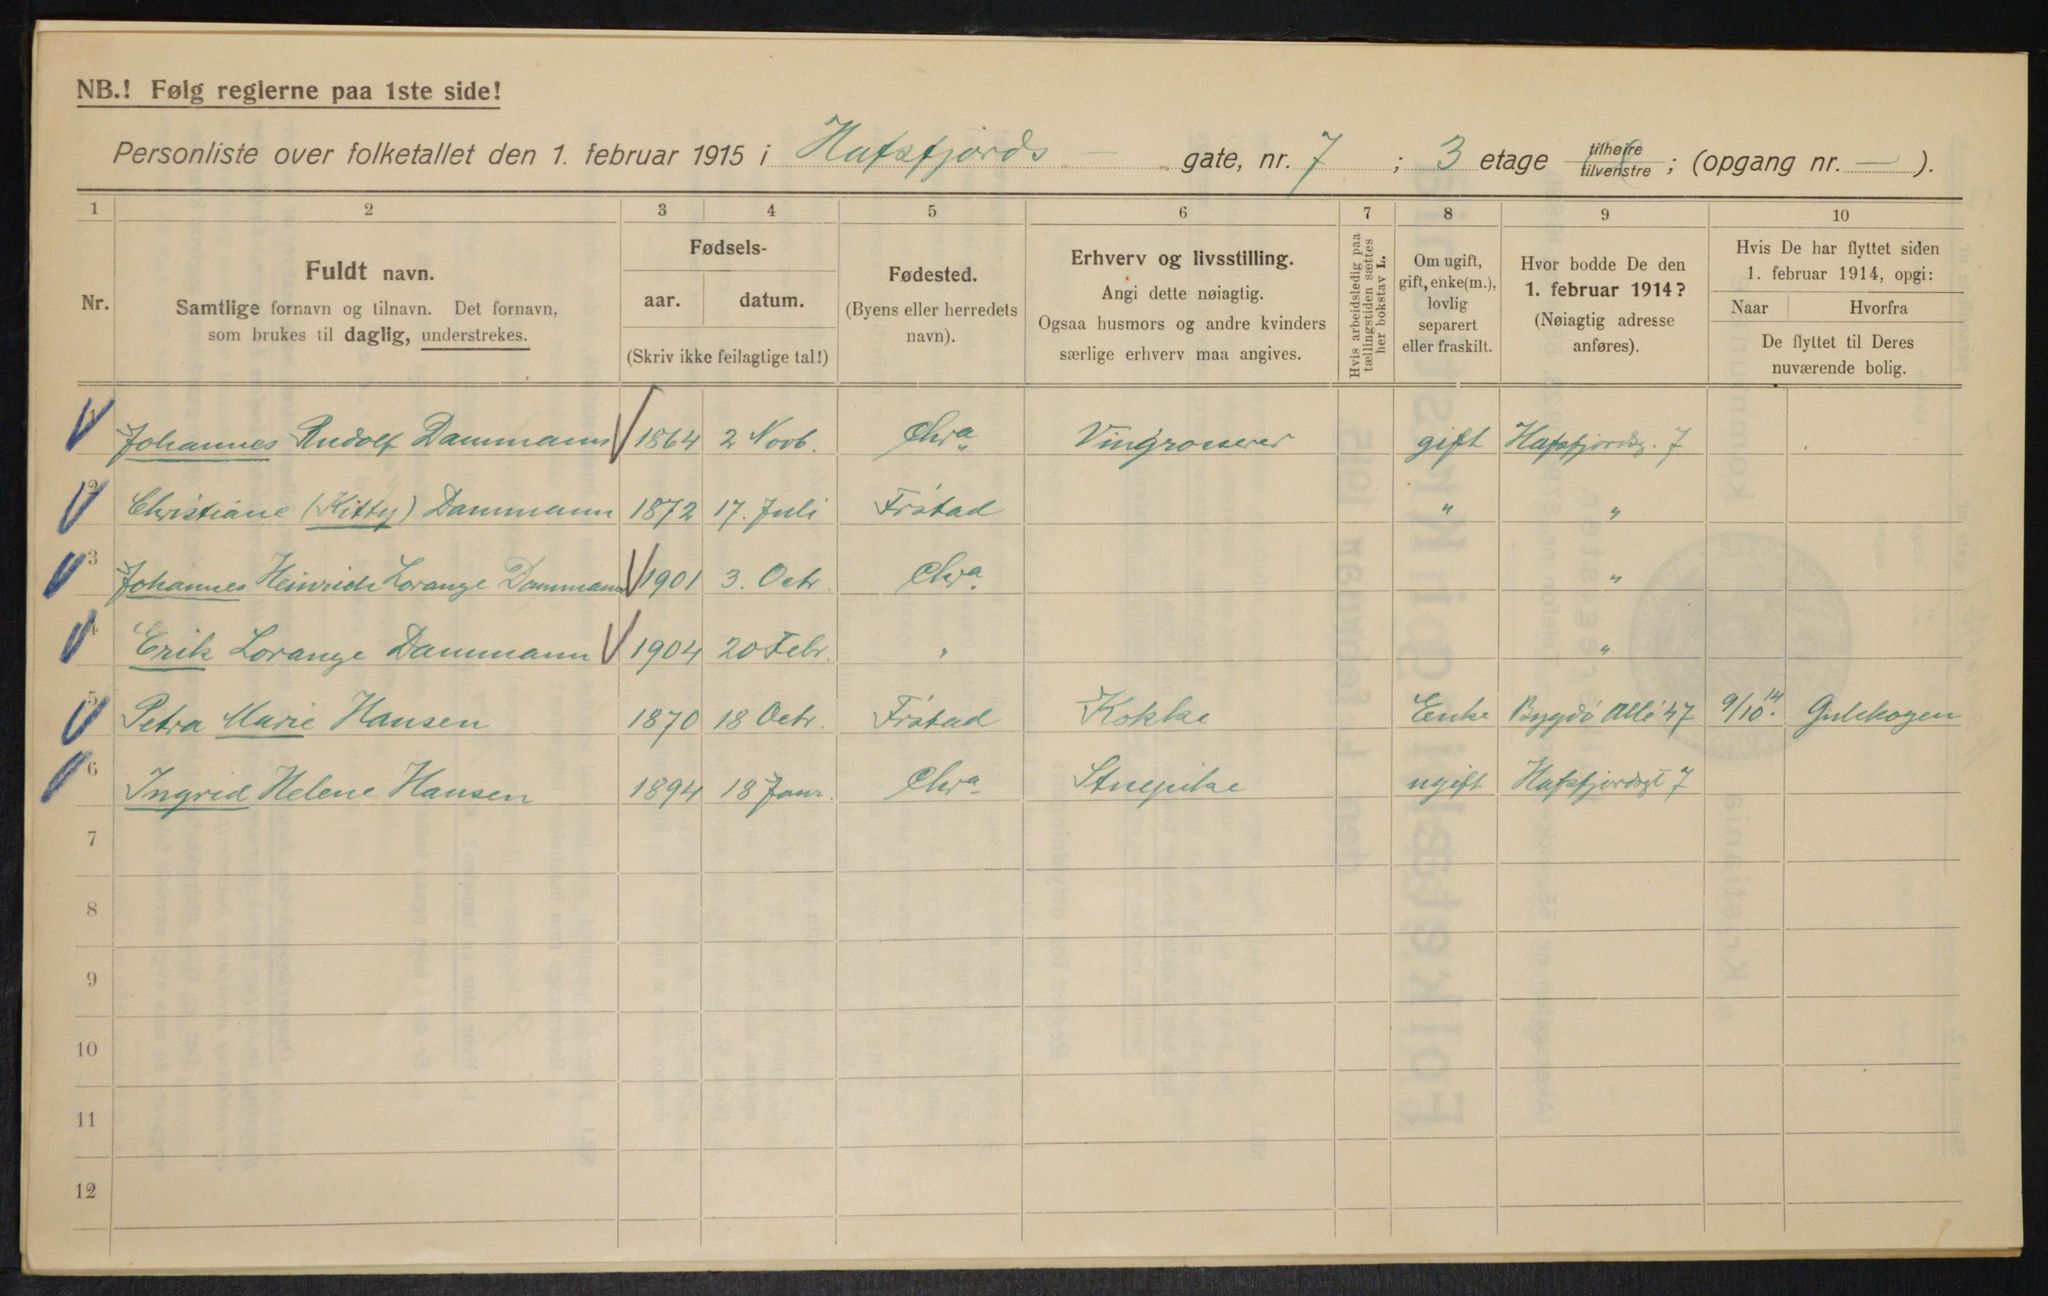 NB.! Følg reglerne paa 1ste side!
Personliste over folketallet den 1. februar 1915 i Hafsfjords — gate, nr. 7 ; 3 etage tilhøire tilvenstre ; (opgang nr. — ).
1 2 3 4 5 6 7 8 9 10
Nr.
Fuldt navn.
Samtlige fornavn og tilnavn. Det fornavn,
som brukes til daglig, understrekes.
Fødsels-
aar. datum.
(Skriv ikke feilagtige tal!)
Fødested.
(Byens eller herredets
navn).
Erhverv og livsstilling.
Angi dette nøiagtig.
Ogsaa husmors og andre kvinders
særlige erhverv maa angives.
Hvis arbeidsledig paa
tællingstiden sættes
her bokstav L.
Om ugift,
gift, enke(m.),
lovlig
separert
eller fraskilt.
Hvor bodde De den
1. februar 1914?
(Nøiagtig adresse
anføres).
Hvis De har flyttet siden
1. februar 1914, opgi:
Naar Hvorfra
De flyttet til Deres
nuværende bolig.
1 Johannes Rudolf Dammann 1864 2 Novb. Chra Vingrosserer gift Hafsfjordsg. 7
2 Christiane (Kitty) Dammann 1872 17. Juli Frstad " "
3 Johannes Heinrich Lorange Dammann 1901 3. Octr. Chra. "
4 Erik Lorange Dammann 1904 20 Febr. " "
5 Petra Marie Hansen 1870 18 Octr. Frstad Kokke Enke Bygdö Allé 47 9/10 14. Gulskogen
6 Ingrid Helene Hansen 1894 18 Janr. Chra Stuepike ugift Hafsfjordsgt 7
7
8
9
10
11
12